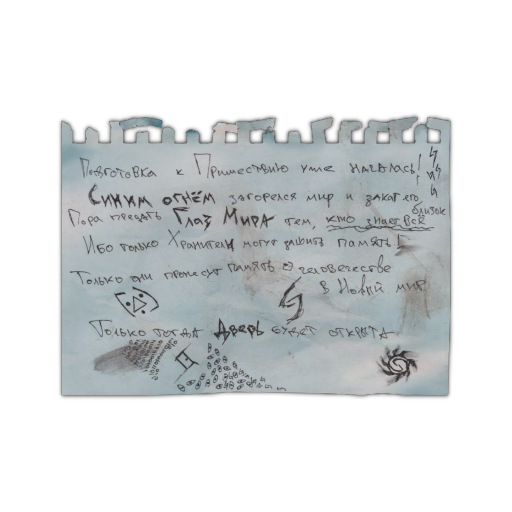 Подготовка к Пришествию уже началась!
Синим огнём загорелся мир и закат его близок
Пора предать Глаз Мира тем, кто знает всё
Ибо только Хранители могут защитить память!
Только они пронесут память о человечестве
в Новый мир
Только тогда Дверь будет открыта